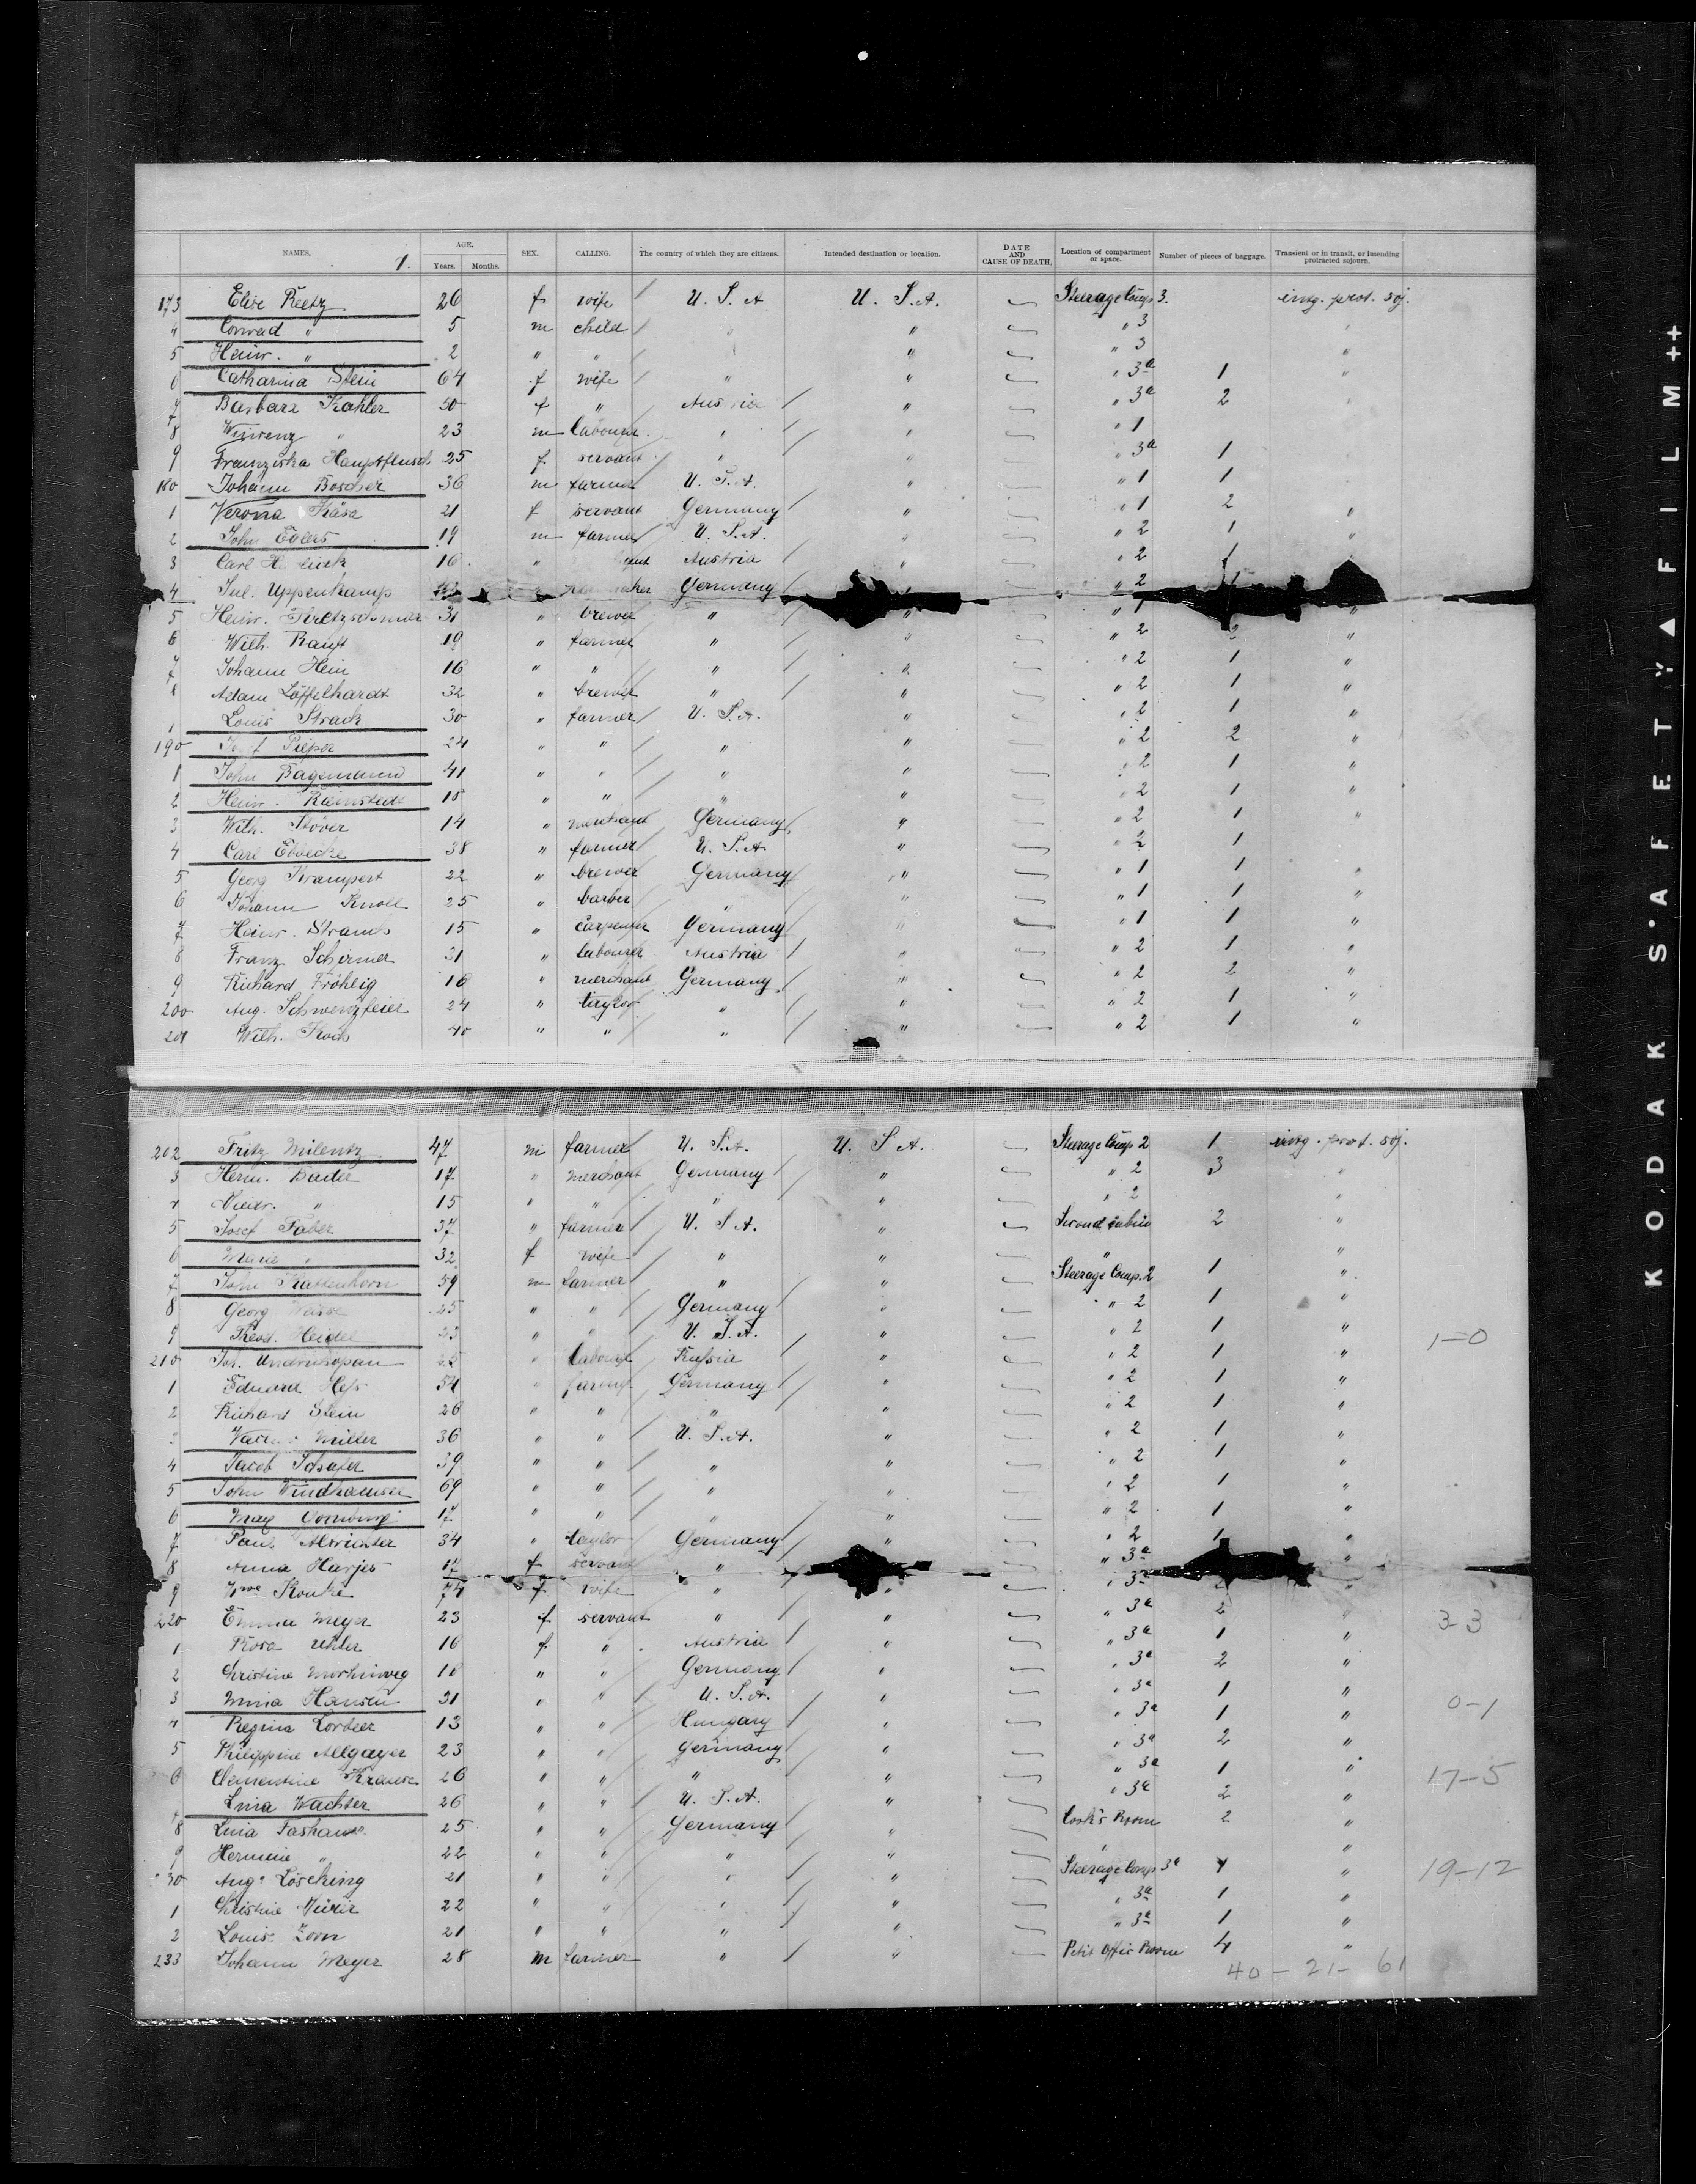 NAMES. AGE. Years. Months. SEX. CALLING. The country of which they are citizens. Intended destination or location. DATE AND CAUSE OF DEATH. Location of compartment or space. Number of pieces of baggage. Transient or in transit, or intending protracted sojourn.
173 Elise Reetz 26 f wife U. S. A U. S. A. Steerage Comp 3. intg. prot. soj.
4 Conrad " 5 m child " " " 3 "
5 Heinr. " 2 " " " " " 3 "
6 Catharina Stein 64 f wife " " " 3a 1 "
7 Barbara Kahler 50 f " Austria " " 3a 2 "
8 " 23 m labourer " " " 1
9 Franziska 25 f servant " " " 3a 1
180 Johann Boscher 36 m farmer U. S. A. " " 1 1
1 Verona Käsa 21 f servant Germany " " 1 2 "
2 John Ehlers 19 m farmer U. S. A. " " 2 1 "
3 Carl 16 " Austria " " 2 1
4 Jul. Uppenkamp Germany " 2
5 Heinr. Kretzschmar 31 " brewer " " " 1 "
6 Wilh. Rauft 19 " farmer " " " 2 2 "
7 Johann Hein 16 " " " " " 2 1 "
8 Adam Löffelhardt 32 " brewer " " " 2 1 "
Louis Strack 30 " farmer U. S. A. " " 2 1 "
190 Pieper 24 " " " " " 2 2 "
1 John Bagemann 41 " " " " " 2 1 "
2 Heinr. Ramstedt 18 " " " " " 2 1 "
3 Wilh. Stöver 14 " merchant Germany " " 2 1 "
4 Carl Ebbecke 38 " farmer U. S. A " " 2 1
5 Georg Krampert 22 " brewer Germany " " 1 1 "
6 Johann Knoll 25 " barber " " " 1 1 "
7 Heinr. 15 " carpenter Germany " " 1 1 "
8 Franz Schirmer 31 " labourer Austria " " 2 1 "
9 Richard Fröhlig 16 " merchant Germany " " 2 2 "
200 Aug. Schwerzfeier 24 " taylor " " " 2 1 "
201 Wilh. Koch 40 " " " " " 2 1 "
202 Fritz Milentz 47 m farmer U. S. A. U. S A. Steerage Comp. 2 1 intg. prot. soj.
3 Herm. 17 " merchant Germany " " 2 3 "
4 " 15 " " " " " 2 "
5 Josef Faber 37 " farmer U. S A. " Second cabin 2 "
6 Marie " 32 f wife " " " "
7 John Kattenhorn 59 m farmer " " Steerage Comp. 2 1 "
8 Georg 25 " " Germany " " 2 1 "
9 Theod. Heidel 23 " " U. S. A. " " 2 1 " 1-0
210 Joh. " labourer Russia " " 2 1 "
1 Eduard Hess 54 " farmer Germany " " 2 1 "
2 Richard Stein 26 " " " " " 2 1 "
3 Miller 36 " " U. S. A. " " 2 1 "
4 Jacob Schafer 39 " " " " " 2 1 "
5 John Windhauser 69 " " " " " 2 1 "
6 Max 17 " " " " " 2 1 "
7 Paul 34 " taylor Germany " " 2 1 "
8 Anna Harjes 17 f servant " " " 3a "
9 Wwe 74 f wife " " " 3a 2 "
220 Emma Meyer 23 f servant " " " 3a 2 " 3-3
1 Rosa Uhler 16 f " Austria " " 3a 1 "
2 Christine Morhinweg 18 " " Germany " " 3a 2 "
3 Mina Hansen 31 " " U. S. A. " " 3a 1 " 0-1
4 Regina Lorbeer 13 " " Hungary " " 3a 1 "
5 Philippine Allgayer 23 " " Germany " " 3a 2 "
6 Clementine Krause 26 " " " " " 3a 1 " 17-5
Lina Wachter 26 " " U. S. A. " " 3a 2 "
8 Lina 25 " " Germany " Cook's Room 2 "
9 Hermine " 22 " " " " " "
30 Aug. Lösching 21 " " " " Steerage Comp. 3a 4 " 19-12
1 Christine 22 " " " " " 3a 1 "
2 Louise Zorn 21 " " " " " 3a 1 "
233 Johann Meyer 28 m farmer " " Petit Offic Room 4 "
40 - 21 - 61
KODAK SAFETY FILM